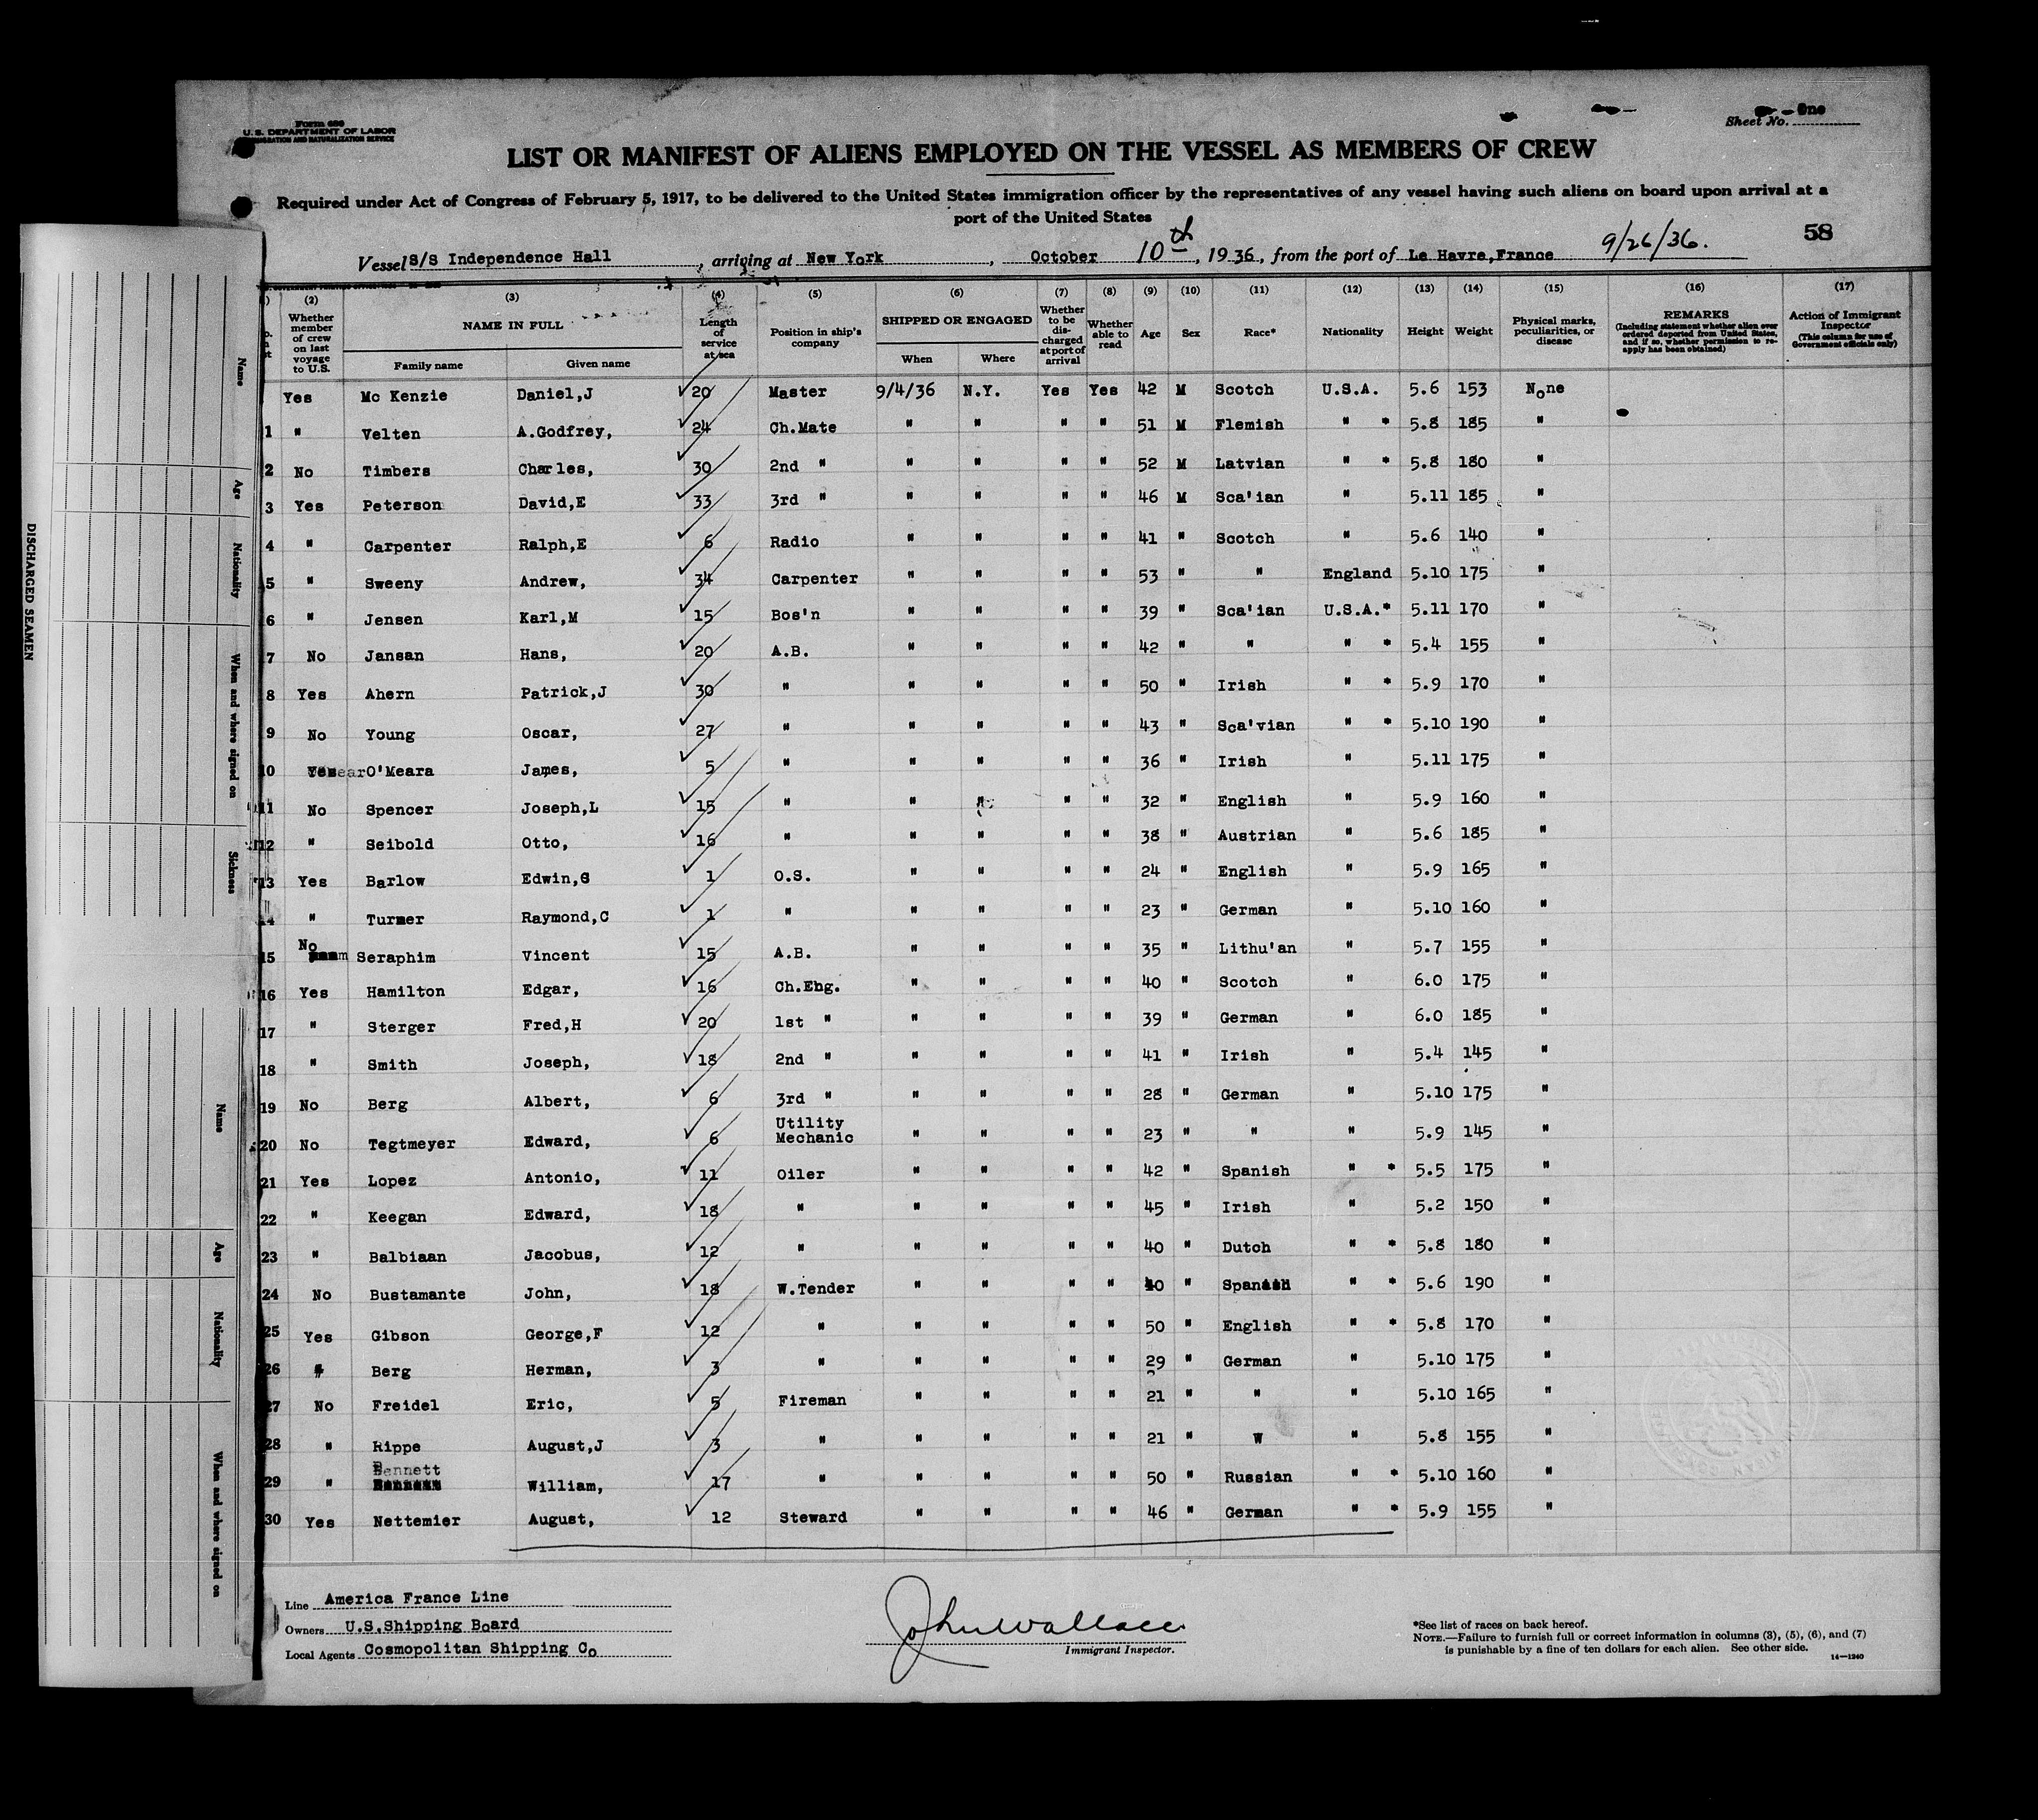 Form 680
U. S. DEPARTMENT OF LABOR
IMMIGRATION AND NATURALIZATION SERVICE
Sheet No. One
LIST OR MANIFEST OF ALIENS EMPLOYED ON THE VESSEL AS MEMBERS OF CREW
Required under Act of Congress of February 5, 1917, to be delivered to the United States immigration officer by the representatives of any vessel having such aliens on board upon arrival at a
port of the United States
58
Vessel S/S Independence Hall, arriving at New York, October 10th, 1936, from the port of Le Havre,France 9/26/36.
(2) (3) (4) (5) (6) (7) (8) (9) (10) (11) (12) (13) (14) (15) (16) (17)
Whether member of crew on last voyage to U.S.
NAME IN FULL
Family name Given name
Length of service at sea
Position in ship's company
SHIPPED OR ENGAGED
When Where
Whether to be discharged at port of arrival
Whether able to read
Age Sex Race* Nationality Height Weight
Physical marks, peculiarities, or disease
REMARKS
(Including statement whether alien ever ordered deported from United States, and if so, whether permission to reapply has been obtained)
Action of Immigrant Inspector
(This column for use of Government officials only)
Yes Mc Kenzie Daniel,J 20 Master 9/4/36 N.Y. Yes Yes 42 M Scotch U.S.A. 5.6 153 None
1 " Velten A.Godfrey, 24 Ch.Mate " " " " 51 M Flemish " * 5.8 185 "
2 No Timbers Charles, 30 2nd " " " " " 52 M Latvian " * 5.8 180 "
3 Yes Peterson David,E 33 3rd " " " " " 46 M Sca'ian " 5.11 185 "
4 " Carpenter Ralph,E 6 Radio " " " " 41 " Scotch " 5.6 140 "
5 " Sweeny Andrew, 34 Carpenter " " " " 53 " " England 5.10 175 "
6 " Jensen Karl,M 15 Bos'n " " " " 39 " Sca'ian U.S.A.* 5.11 170 "
7 No Jansan Hans, 20 A.B. " " " " 42 " " " * 5.4 155 "
8 Yes Ahern Patrick,J 30 " " " " " 50 " Irish " * 5.9 170 "
9 No Young Oscar, 27 " " " " " 43 " Sca'vian " * 5.10 190 "
10 Yes O'Meara James, 5 " " " " " 36 " Irish " 5.11 175 "
11 No Spencer Joseph,L 15 " " " " " 32 " English " 5.9 160 "
12 " Seibold Otto, 16 " " " " " 38 " Austrian " 5.6 185 "
13 Yes Barlow Edwin,S 1 O.S. " " " " 24 " English " 5.9 165 "
14 " Turmer Raymond,C 1 " " " " " 23 " German " 5.10 160 "
15 No Seraphim Vincent 15 A.B. " " " " 35 " Lithu'an " 5.7 155 "
16 Yes Hamilton Edgar, 16 Ch.Ehg. " " " " 40 " Scotch " 6.0 175 "
17 " Sterger Fred,H 20 1st " " " " " 39 " German " 6.0 185 "
18 " Smith Joseph, 18 2nd " " " " " 41 " Irish " 5.4 145 "
19 No Berg Albert, 6 3rd " " " " " 28 " German " 5.10 175 "
20 No Tegtmeyer Edward, 6 Utility Mechanic " " " " 23 " " " 5.9 145 "
21 Yes Lopez Antonio, 11 Oiler " " " " 42 " Spanish " * 5.5 175 "
22 " Keegan Edward, 18 " " " " " 45 " Irish " 5.2 150 "
23 " Balbiaan Jacobus, 12 " " " " " 40 " Dutch " * 5.8 180 "
24 No Bustamante John, 18 W.Tender " " " " 40 " Spanish " * 5.6 190 "
25 Yes Gibson George,F 12 " " " " " 50 " English " * 5.8 170 "
26 " Berg Herman, 3 " " " " " 29 " German " 5.10 175 "
27 No Freidel Eric, 5 Fireman " " " " 21 " " " 5.10 165 "
28 " Rippe August,J 3 " " " " " 21 " W " 5.8 155 "
29 " Bennett William, 17 " " " " " 50 " Russian " * 5.10 160 "
30 Yes Nettemier August, 12 Steward " " " " 46 " German " * 5.9 155 "
Line America France Line
Owners U.S.Shipping Board
Local Agents Cosmopolitan Shipping Co
John Wallace
Immigrant Inspector.
*See list of races on back hereof.
NOTE.—Failure to furnish full or correct information in columns (3), (5), (6), and (7)
is punishable by a fine of ten dollars for each alien. See other side.
14—1240
DISCHARGED SEAMEN
Name
Age
Nationality
When and where signed on
Sickness
Name
Age
Nationality
When and where signed on